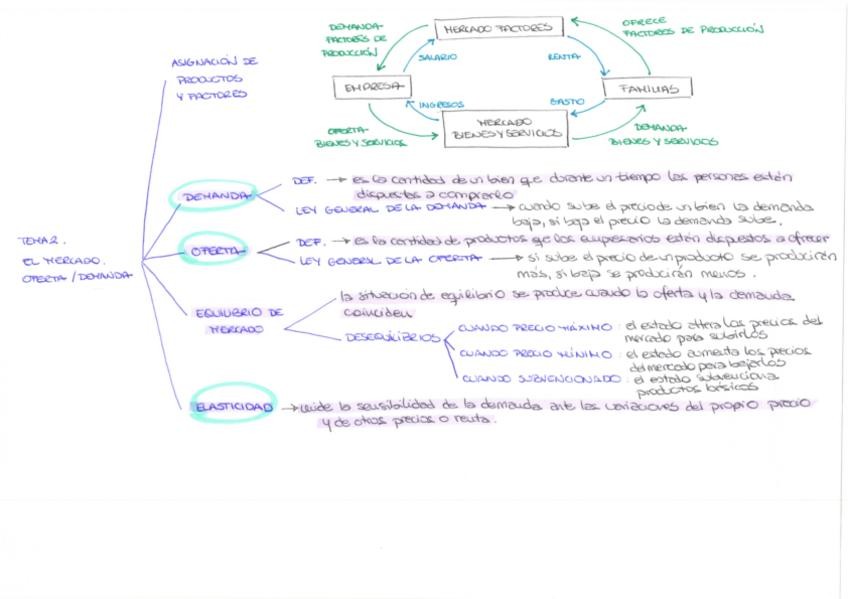 DEMANDA
FACTORES DE
PRODUCCIÓN
MERCADO FACTORES
OFRECE
FACTORES DE PRODUCCIÓN
SALARIO
RENTA
EMPRESA
FAMILIAS
INGRESOS
GASTO
MERCADO
BIENES Y SERVICIOS
OFERTA
BIENES Y SERVICIOS
DEMANDA
BIENES Y SERVICIOS
ASIGNACIÓN DE
PRODUCTOS
Y FACTORES
TEMA 2.
EL MERCADO.
OFERTA / DEMANDA
DEMANDA
DEF. → es la cantidad de un bien que durante un tiempo las personas están
dispuestas a comprarlo
LEY GENERAL DE LA DEMANDA → cuando sube el precio de un bien la demanda
baja, si baja el precio la demanda sube.
OFERTA
DEF. → es la cantidad de productos que los empresarios están dispuestos a ofrecer
LEY GENERAL DE LA OFERTA → si sube el precio de un producto se producirán
más, si baja se producirán menos.
EQUILIBRIO DE
MERCADO
la situación de equilibrio se produce cuando la oferta y la demanda
coinciden
DESEQUILIBRIOS
CUANDO PRECIO MÁXIMO: el estado altera los precios del
mercado para subirlos
CUANDO PRECIO MÍNIMO: el estado aumenta los precios
del mercado para bajarlos
CUANDO SUBVENCIONADO: el estado subvenciona
productos básicos
ELASTICIDAD → mide la sensibilidad de la demanda ante las variaciones del propio precio
y de otros precios o renta.